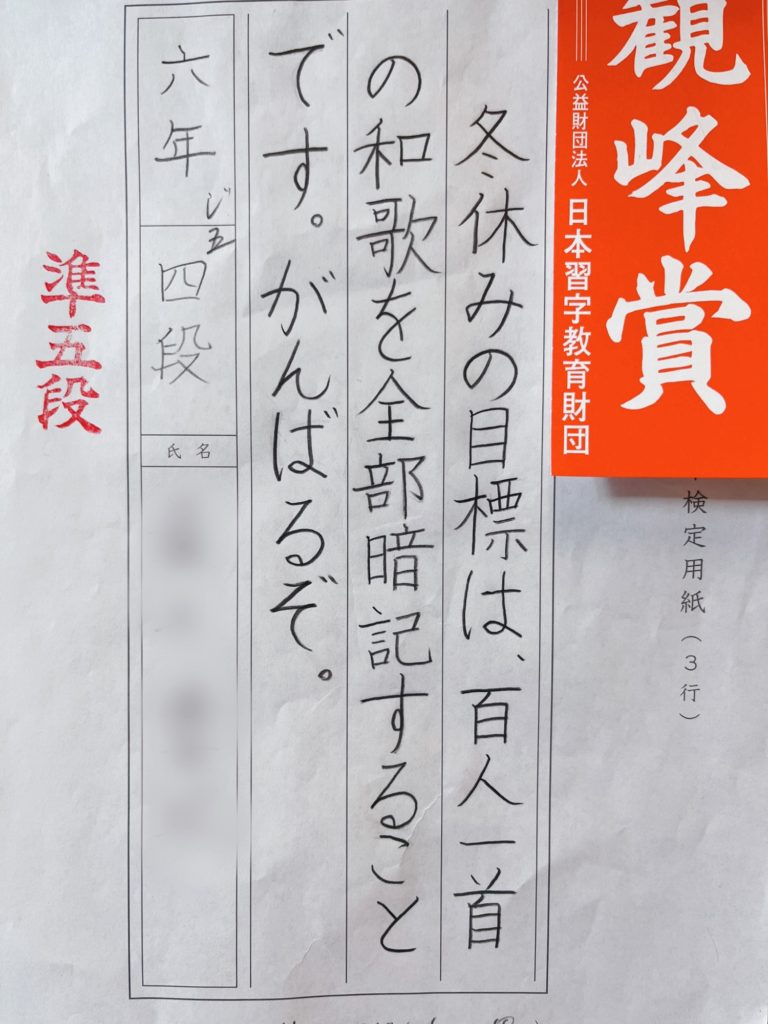 観峰賞
公益財団法人 日本習字教育財団
検定用紙(3行)
冬休みの目標は、百人一首
の和歌を全部暗記すること
です。がんばるぞ。
六年
じ五
四段
氏名
準五段